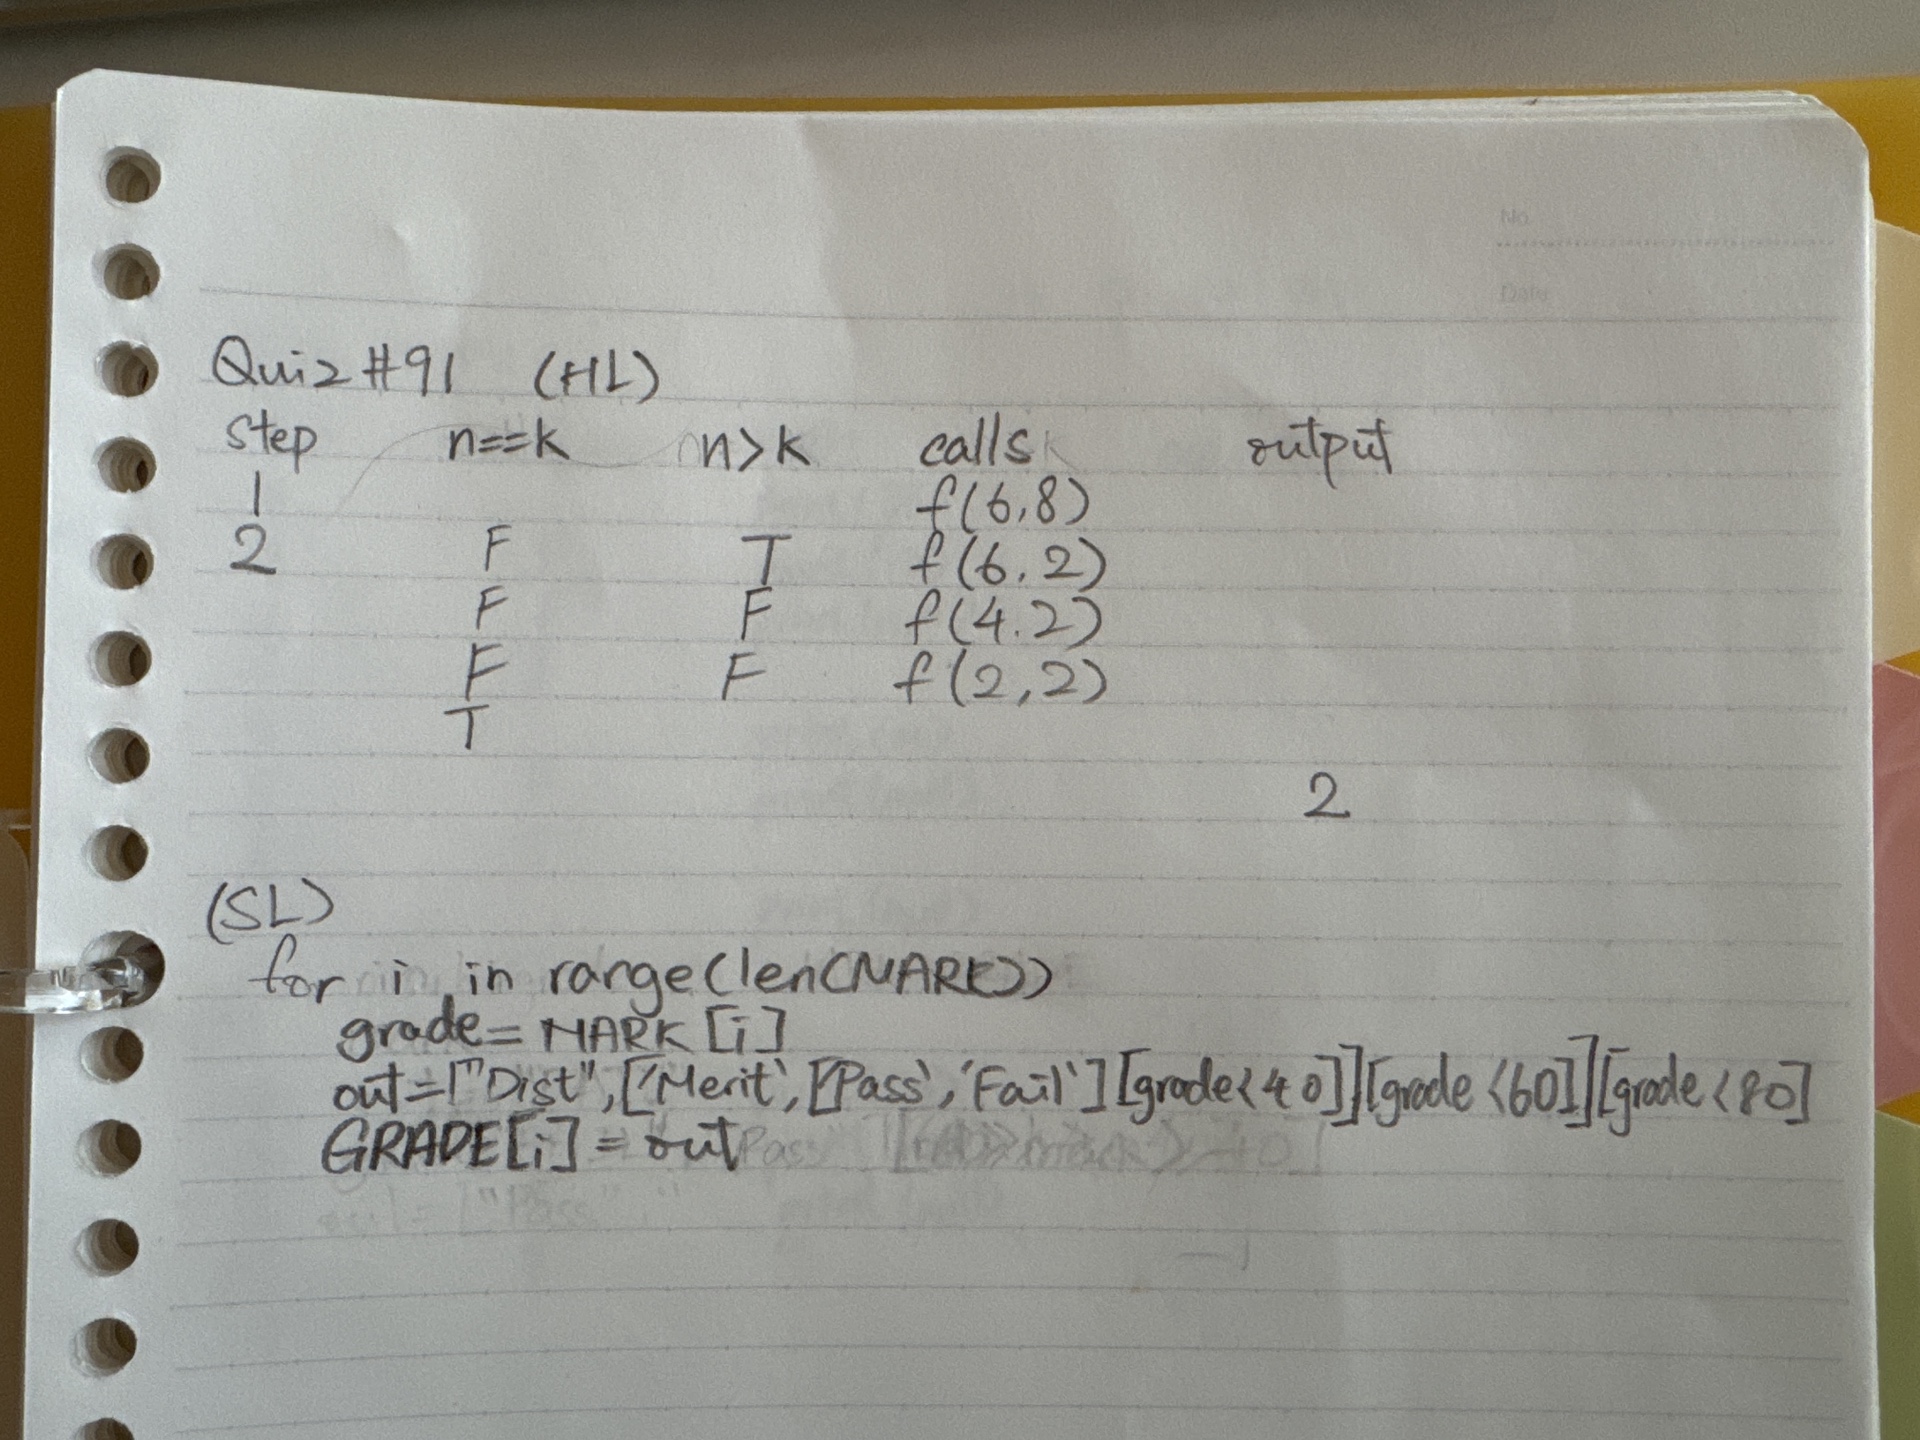 No
Date
Quiz #91 (HL)
step n==k n>k calls output
1 f(6,8)
2 F T f(6,2)
F F f(4,2)
F F f(2,2)
T
2
(SL)
for i in range(len(MARK))
grade = MARK[i]
out = ["Dist", ['Merit', ['Pass', 'Fail'][grade<40]][grade<60]][grade<80]
GRADE[i] = out